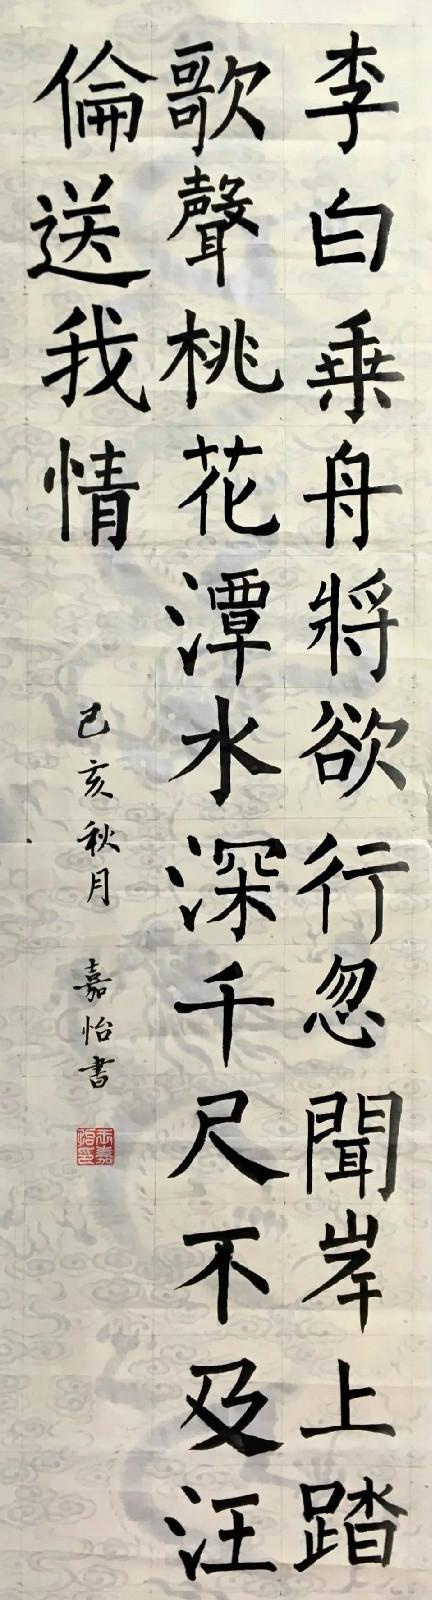 李白乘舟將欲行忽聞岸上踏
歌聲桃花潭水深千尺不及汪
倫送我情
己亥秋月 嘉怡書